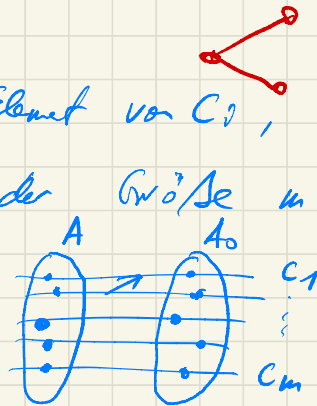 Element von C₀,
der Größe m
A A₀
C₁
⋮
Cₘ